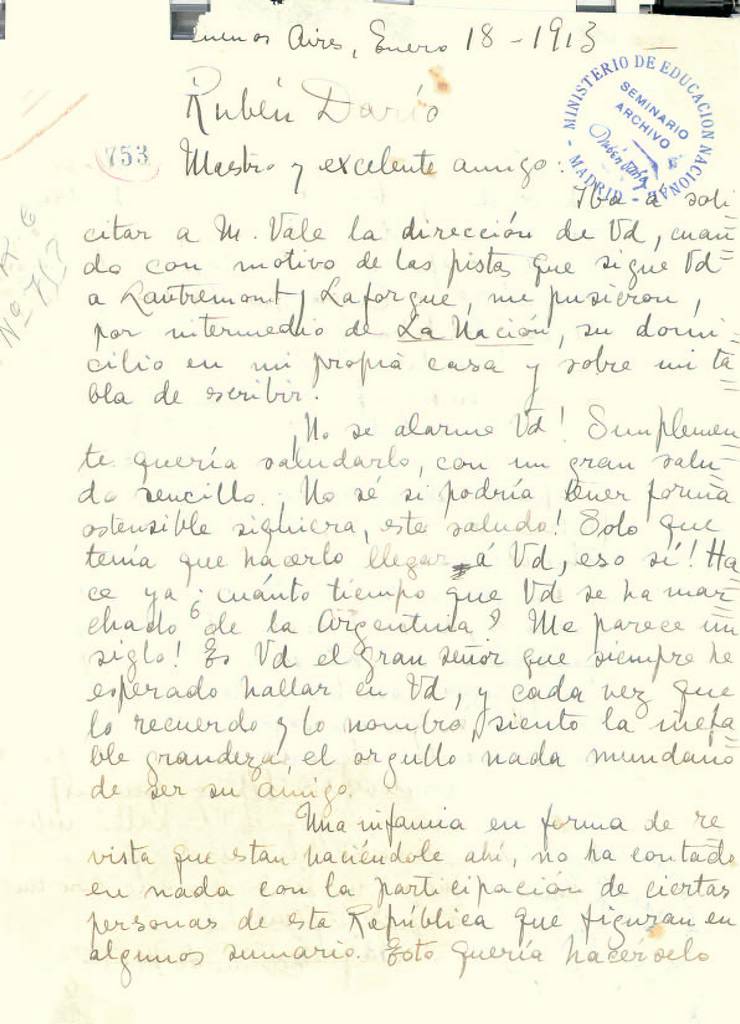 uenos Aires, Enero 18-1913
Rubén Darío
MINISTERIO DE EDUCACION NACIONAL - MADRID -
SEMINARIO
ARCHIVO
Rubén Darío
753
Maestro y excelente amigo:
Iba a soli
citar a M. Vale la dirección de Vd, cuan=
do con motivo de las pistas que sigue Vd
a Lautremont y Laforgue, me pusieron,
por intermedio de La Nación, su domi=
cilio en mi propia casa y sobre mi ta=
bla de escribir.
¡No se alarme Vd! Simplemen=
te quería saludarlo, con un gran salu=
do sencillo. ¡No sé si podría tener forma
ostensible siquiera, este saludo! Solo que
tenía que hacerlo llegar á Vd, eso sí! Ha=
ce ya ¿cuánto tiempo que Vd se ha mar=
chado de la Argentina? Me parece un
siglo! Es Vd el gran señor que siempre he
esperado hallar en Vd, y cada vez que
lo recuerdo y lo nombro, siento la inefa=
ble grandeza, el orgullo nada mundano
de ser su amigo.
Una infamia en forma de re=
vista que estan haciéndole ahí, no ha contado
en nada con la participación de ciertas
personas de esta República que figuran en
algunos sumario. Esto quería hacérselo